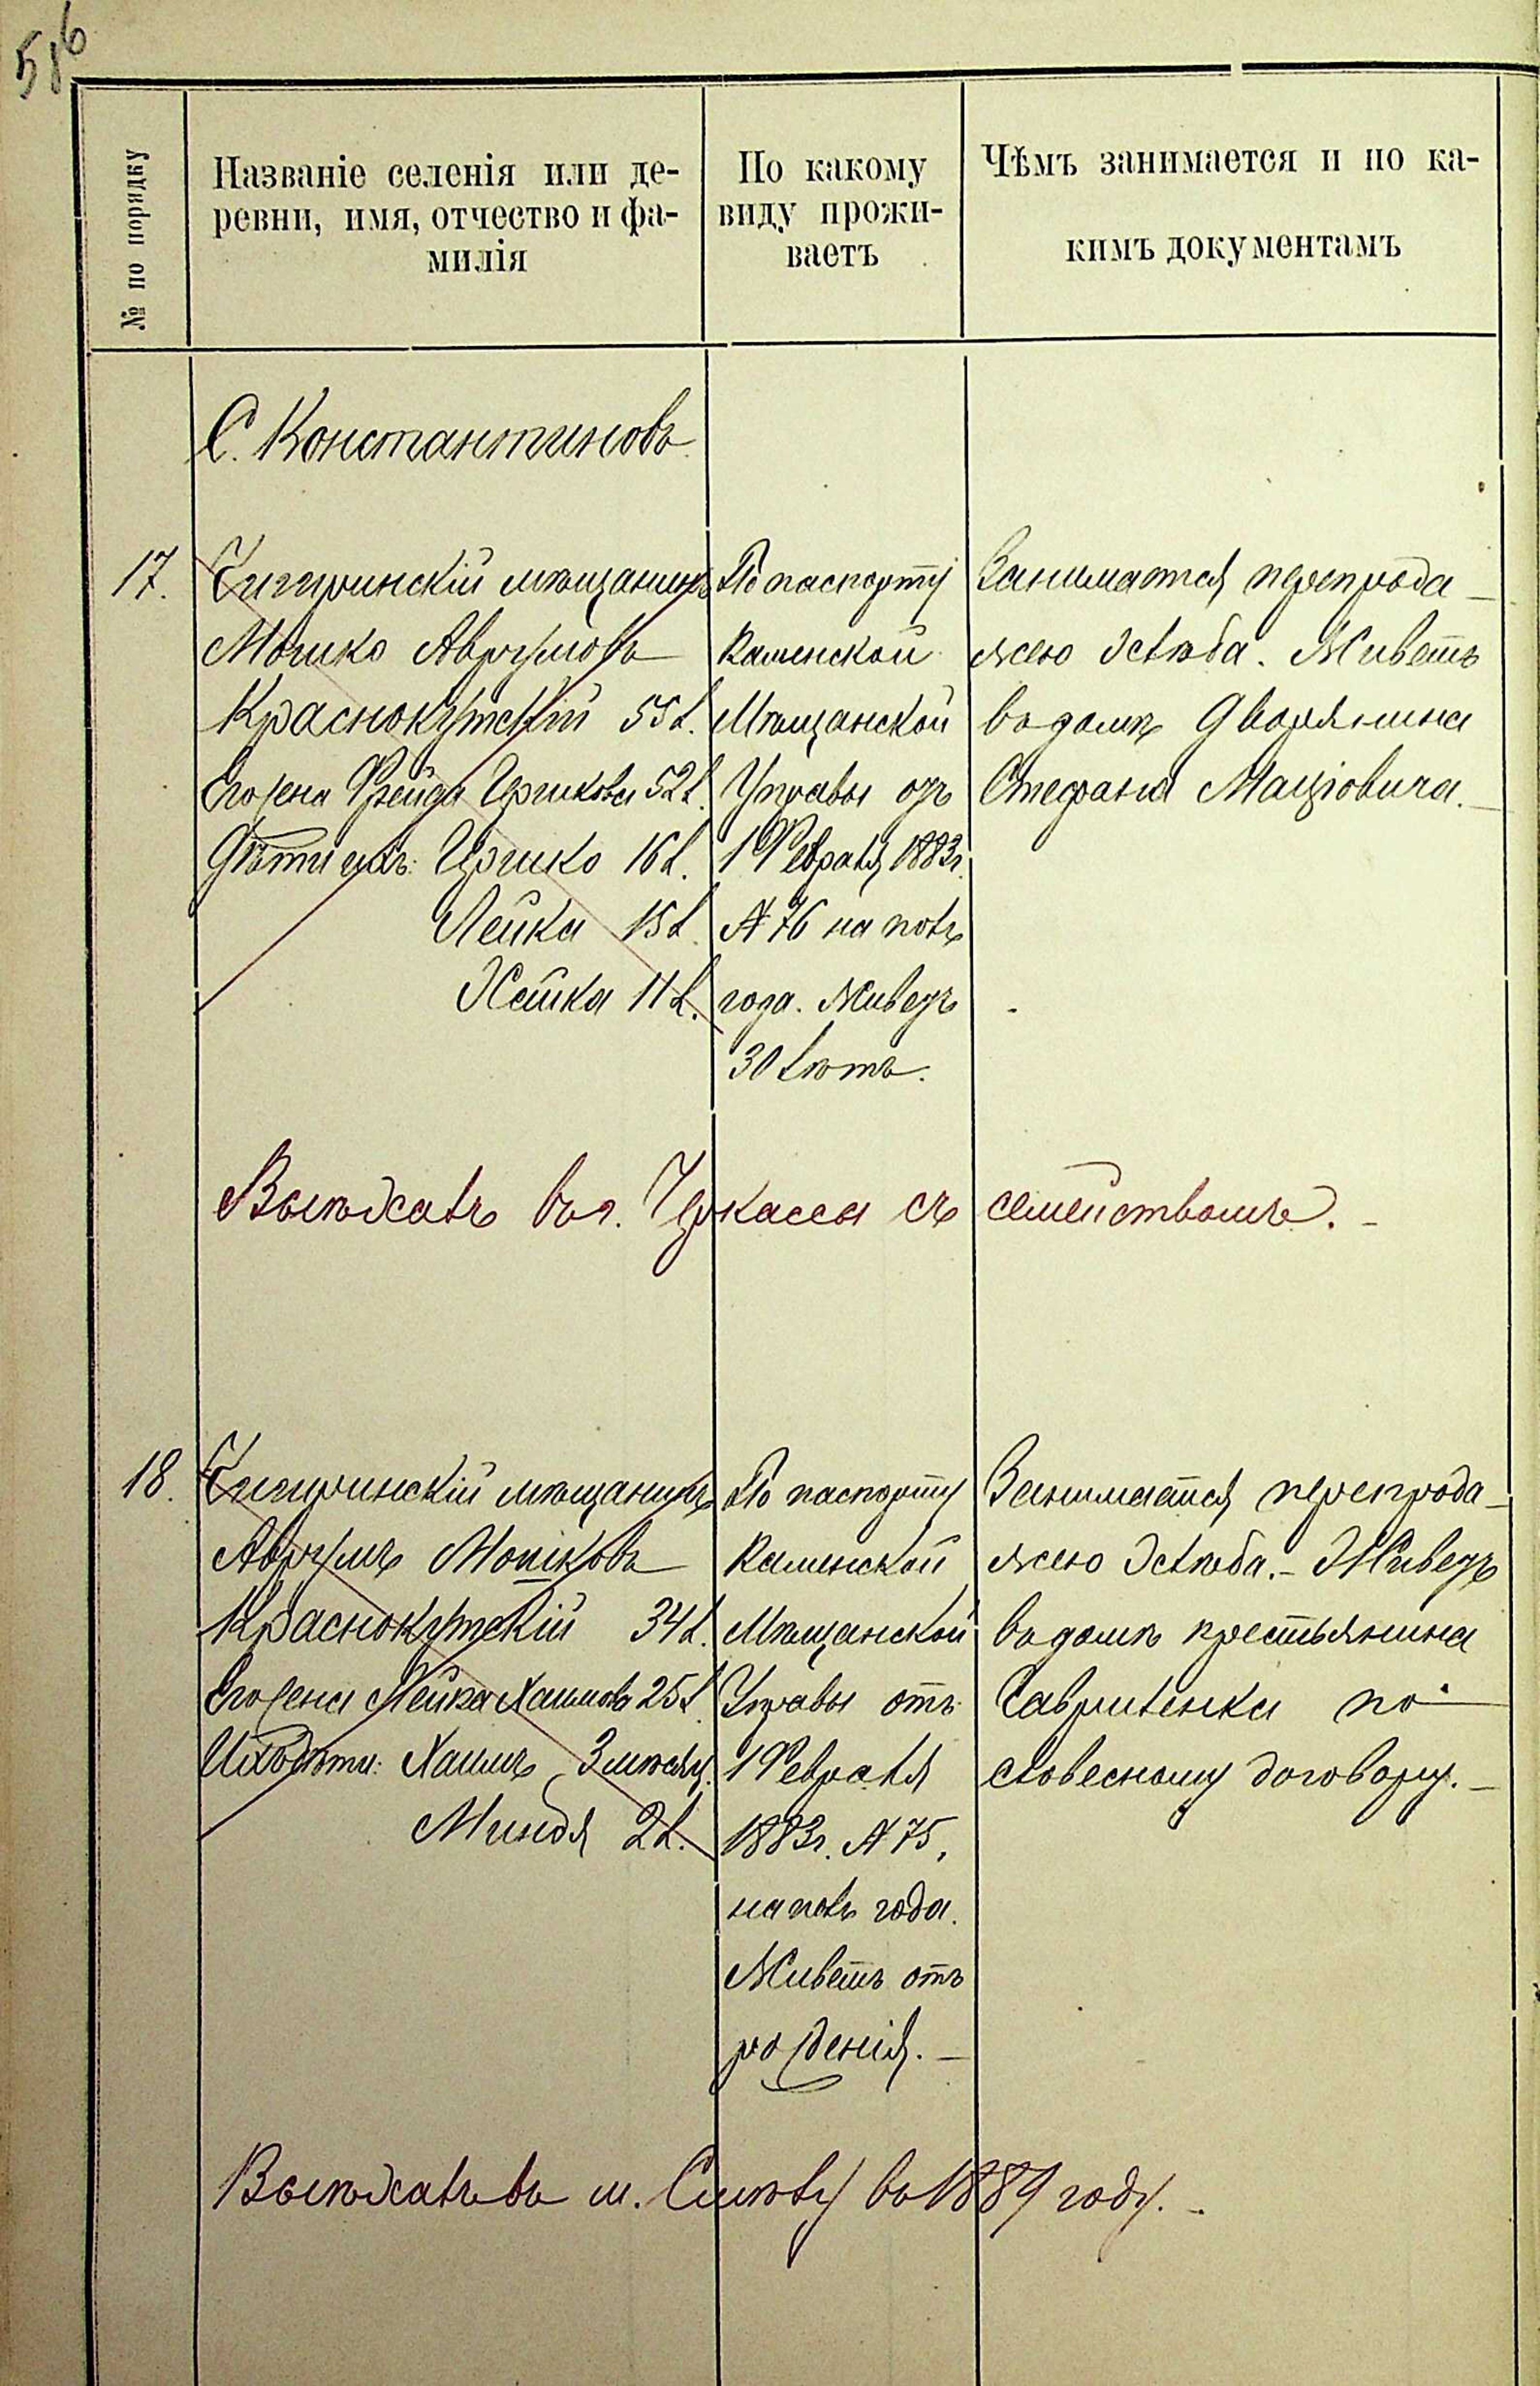 586
№ по порядку
Названіе селенія или де-
ревни, имя, отчество и фа-
милія
По какому
виду прожи-
ваетъ
Чѣмъ занимается и по ка-
кимъ документамъ
С. Константиновъ
17.
Чигиринскій мѣщанинъ
Мошко Аврумовъ
Краснокутскій 55 л.
Его жена Фрейда Цршкова 52 л.
Дѣти ихъ: Цршко 16 л.
Лейка 15 л.
Хайка 11 л.
По паспорту
Каменской
Мѣщанской
Управы отъ
1 Февраля 1883 г.
№ 76 на полъ
года. Живетъ
30 лѣтъ.
Занимается перепрода-
жею хлѣба. Живетъ
въ домѣ дворянина
Стефана Маціовича.-
Выѣхалъ въ г. Черкассы съ семействомъ.-
18.
Чигиринскій мѣщанинъ
Аврумъ Мошковъ
Краснокутскій 34 л.
Его жена Лейка Хаимова 25 л.
Ихъ дѣти: Хаимъ 3 мѣсяц.
Миндя 2 л.
По паспорту
Каменской
Мѣщанской
Управы отъ
1 Февраля
1883 г. № 75,
на полъ года.
Живетъ отъ
рожденія.-
Занимается перепрода-
жею хлѣба.- Живетъ
въ домѣ крестьянина
Гавриленка по
словесному договору.-
Выѣхалъ въ м. Смѣлу въ 1889 году.-